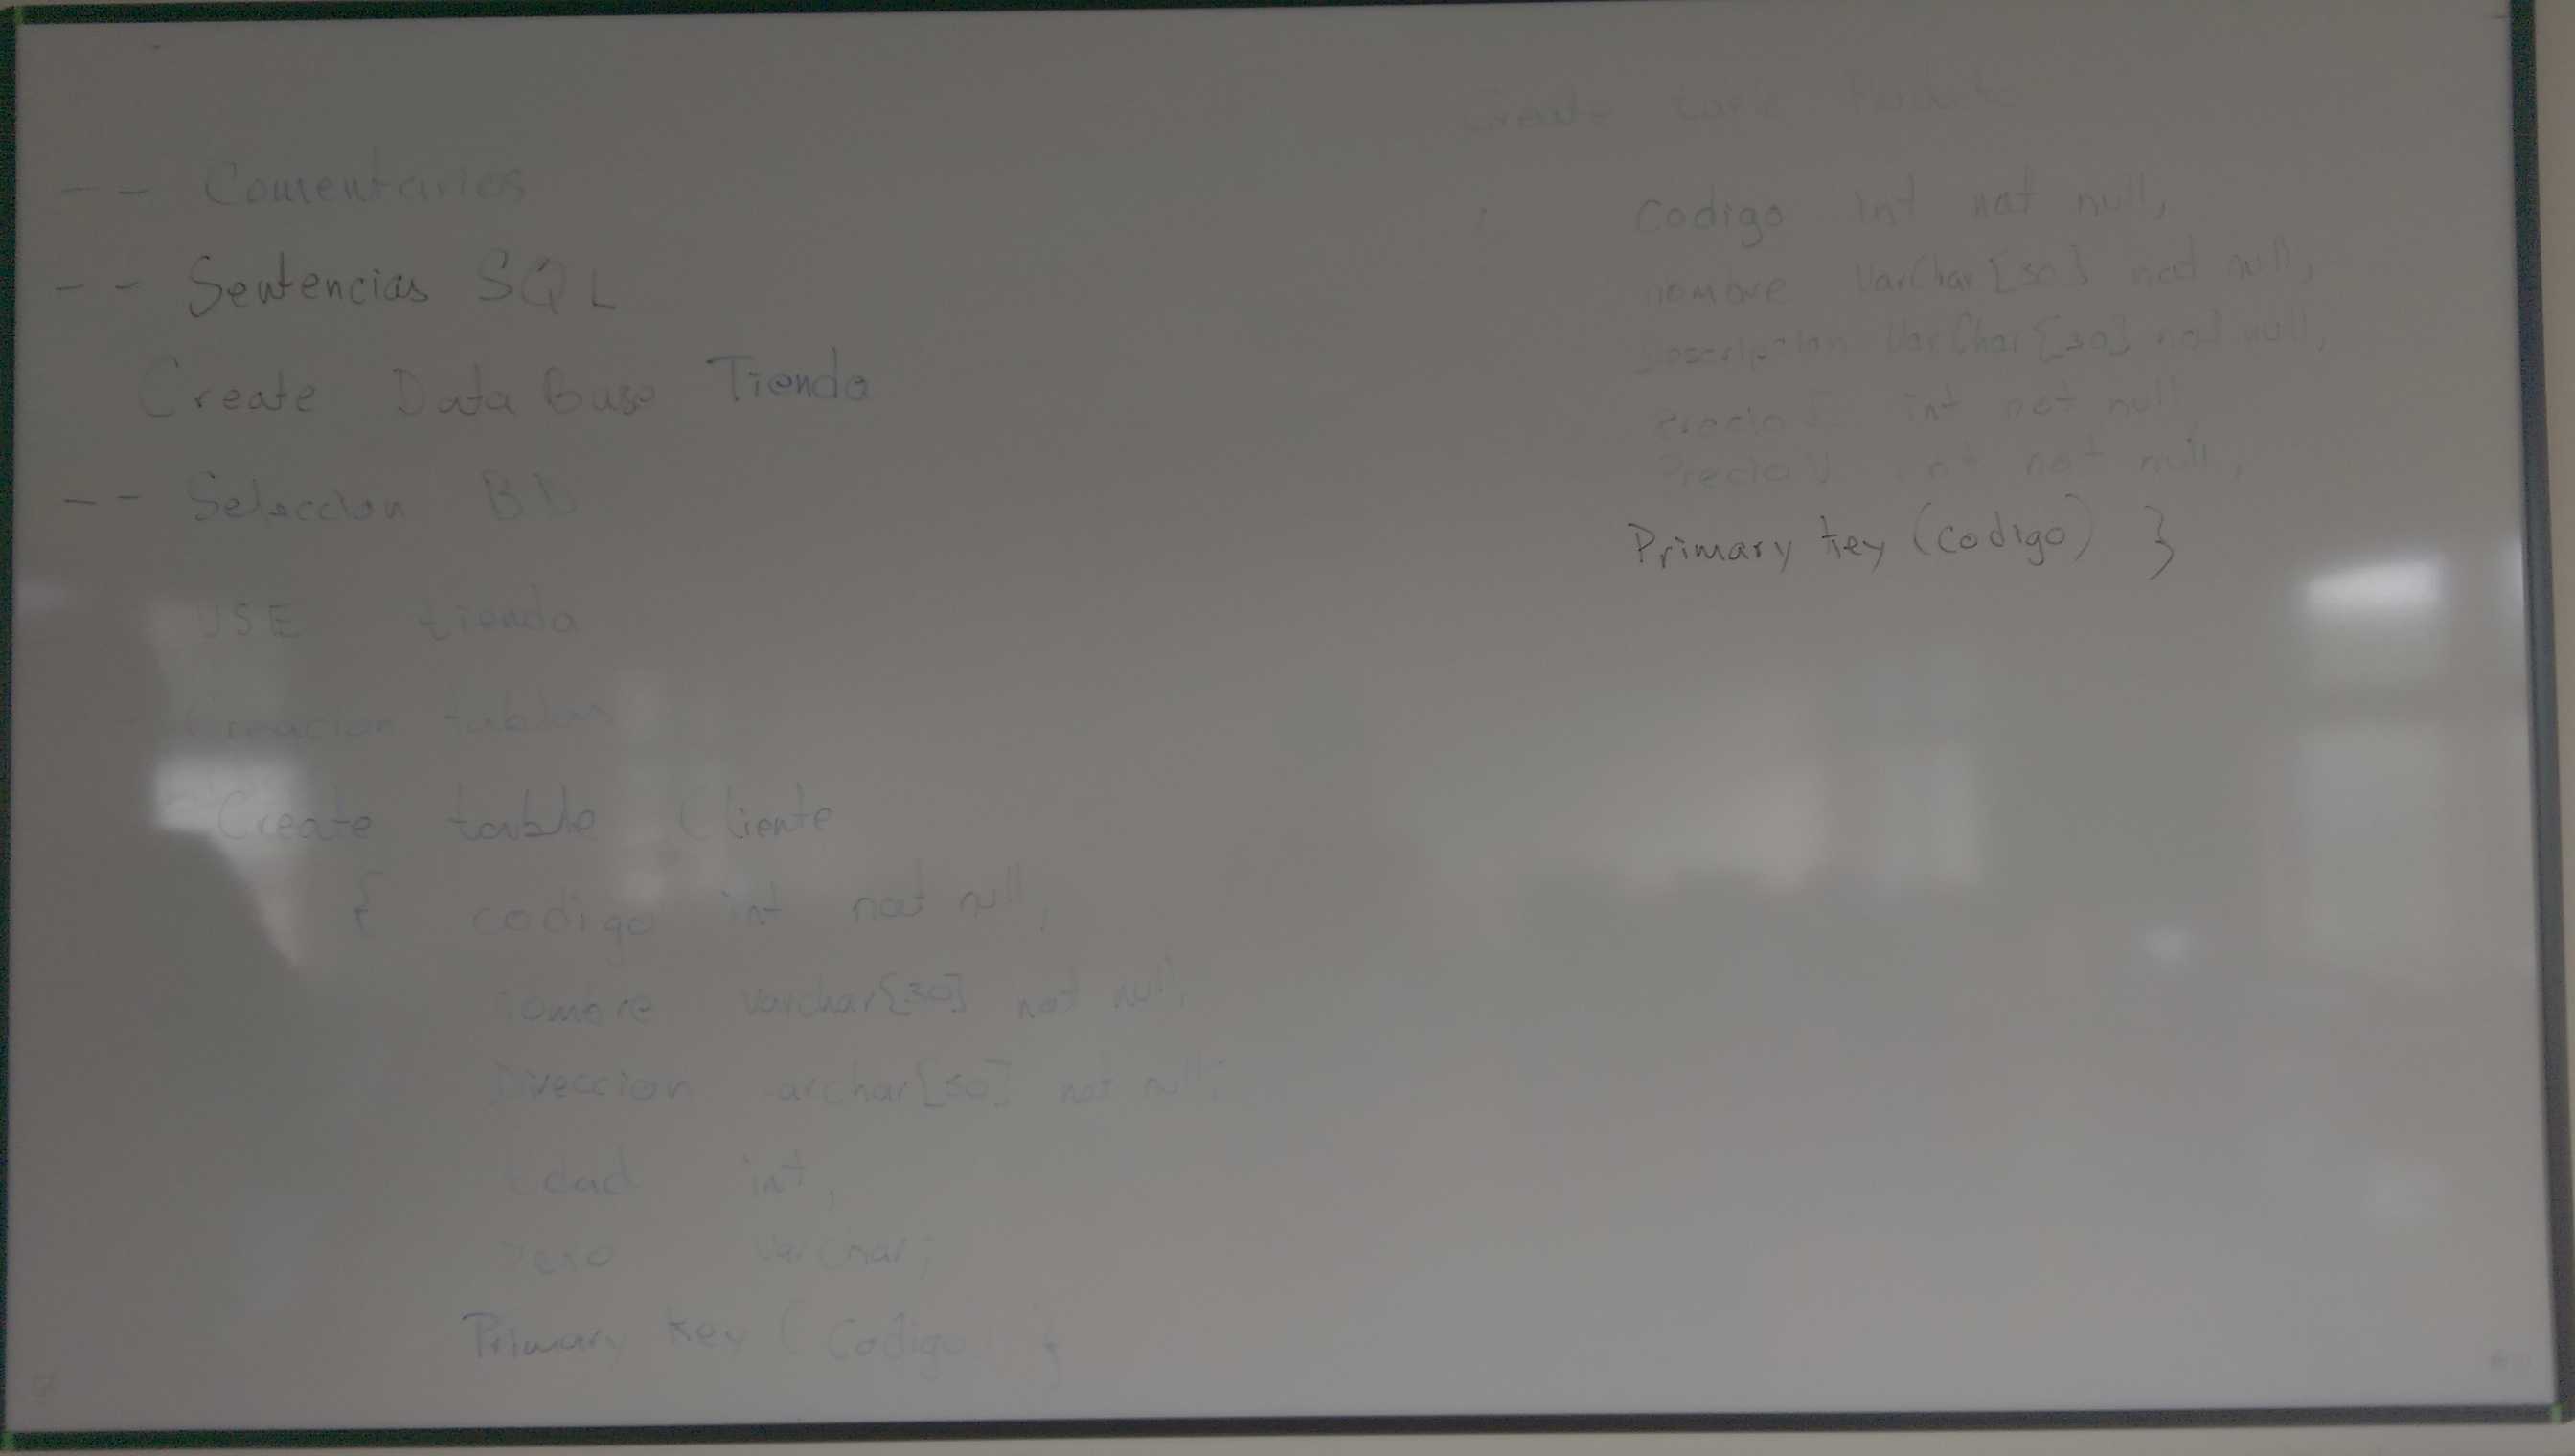 -- Comentarios
-- Sentencias SQL
Create Data Base Tienda
-- Seleccion BD
USE tienda
Creacion tablas
Create table Cliente
{ codigo int not null,
nombre varchar[30] not null,
Direccion varchar[50] not null,
Edad int,
sexo varchar;
Primary key (Codigo) }
Create table
Codigo int not null,
nombre VarChar [50] not null,
Descripcion VarChar [30] not null,
Precio int not null
PrecioV int not null,
Primary key (codigo) }